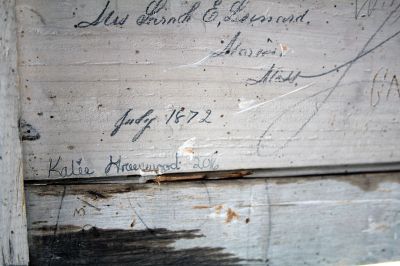 Mrs Sarah E. Leonard.
Marion
Mass
July 1872
Katie 2016